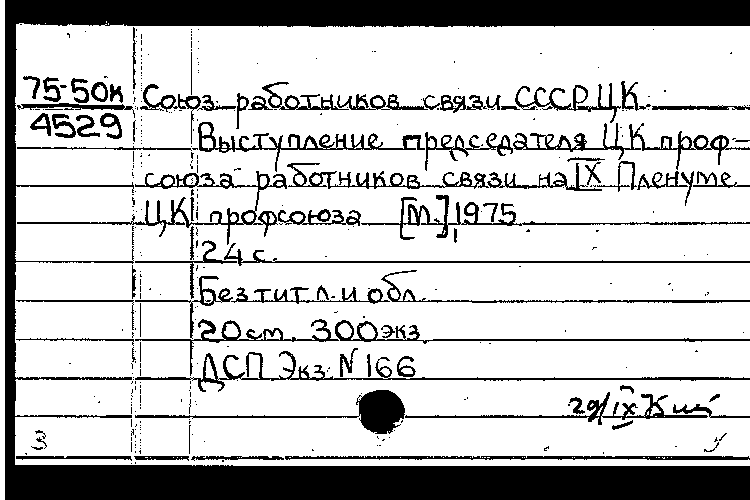 75-50к
4529
Союз работников связи СССР. ЦК.
Выступление председателя ЦК проф-
союза работников связи на IX Пленуме
ЦК профсоюза [М.], 1975
24 с.
Без тит. л. и обл.
20 см. 300 экз.
ДСП Экз. N 166
29/IX
З